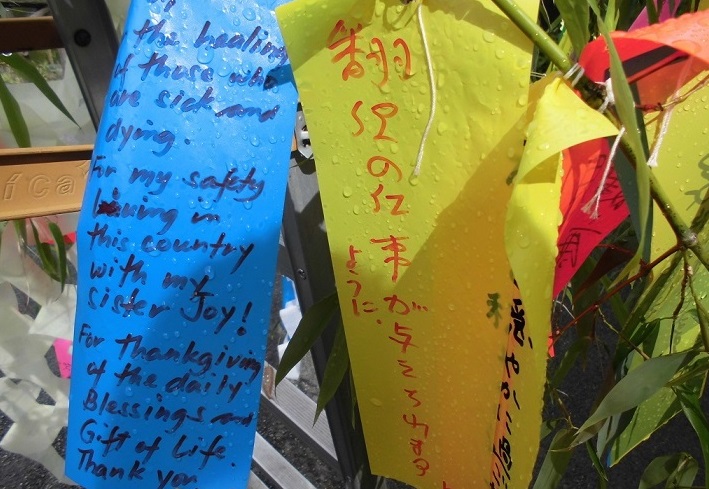 the healing
of those who
are sick and
dying.
For my safety
living in
this country
with my
sister Joy!
For thankgiving
of the daily
Blessings and
Gift of Life.
Thank you
翻訳の仕事が与えられます
ように.
ica